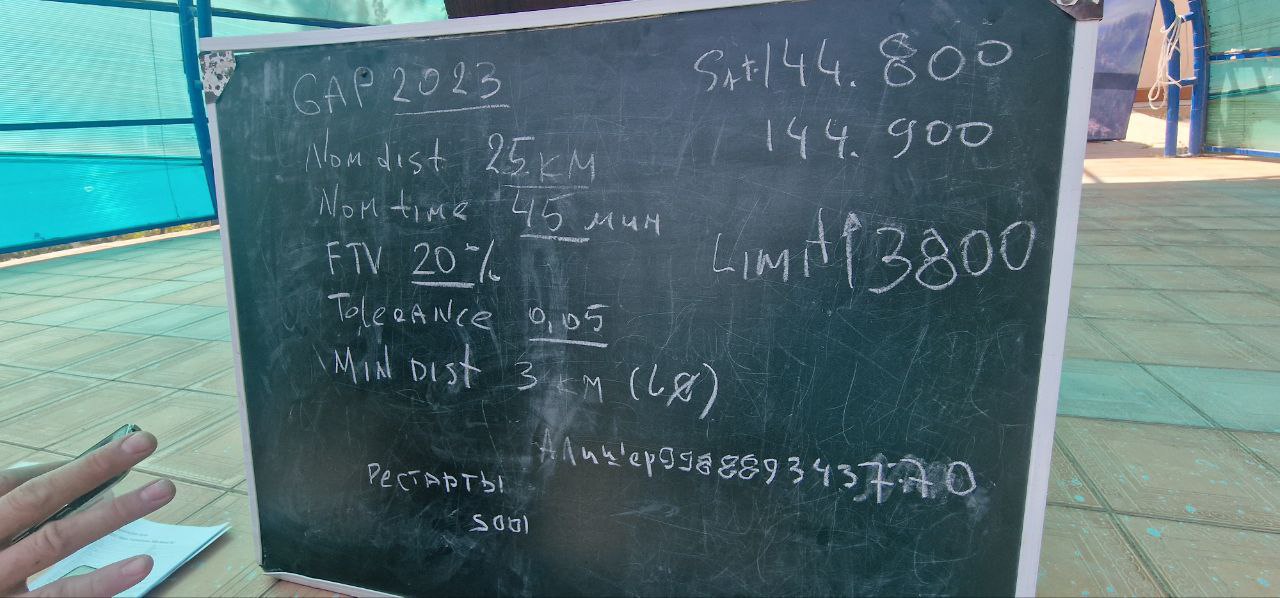 GAP 2023
Nom dist 25 км
Nom time 45 мин
FTV 20%
Tolerance 0,05
MIN DIST 3 км
Рестарты
144.800
144.900
LIMIT↑3800
998889343770